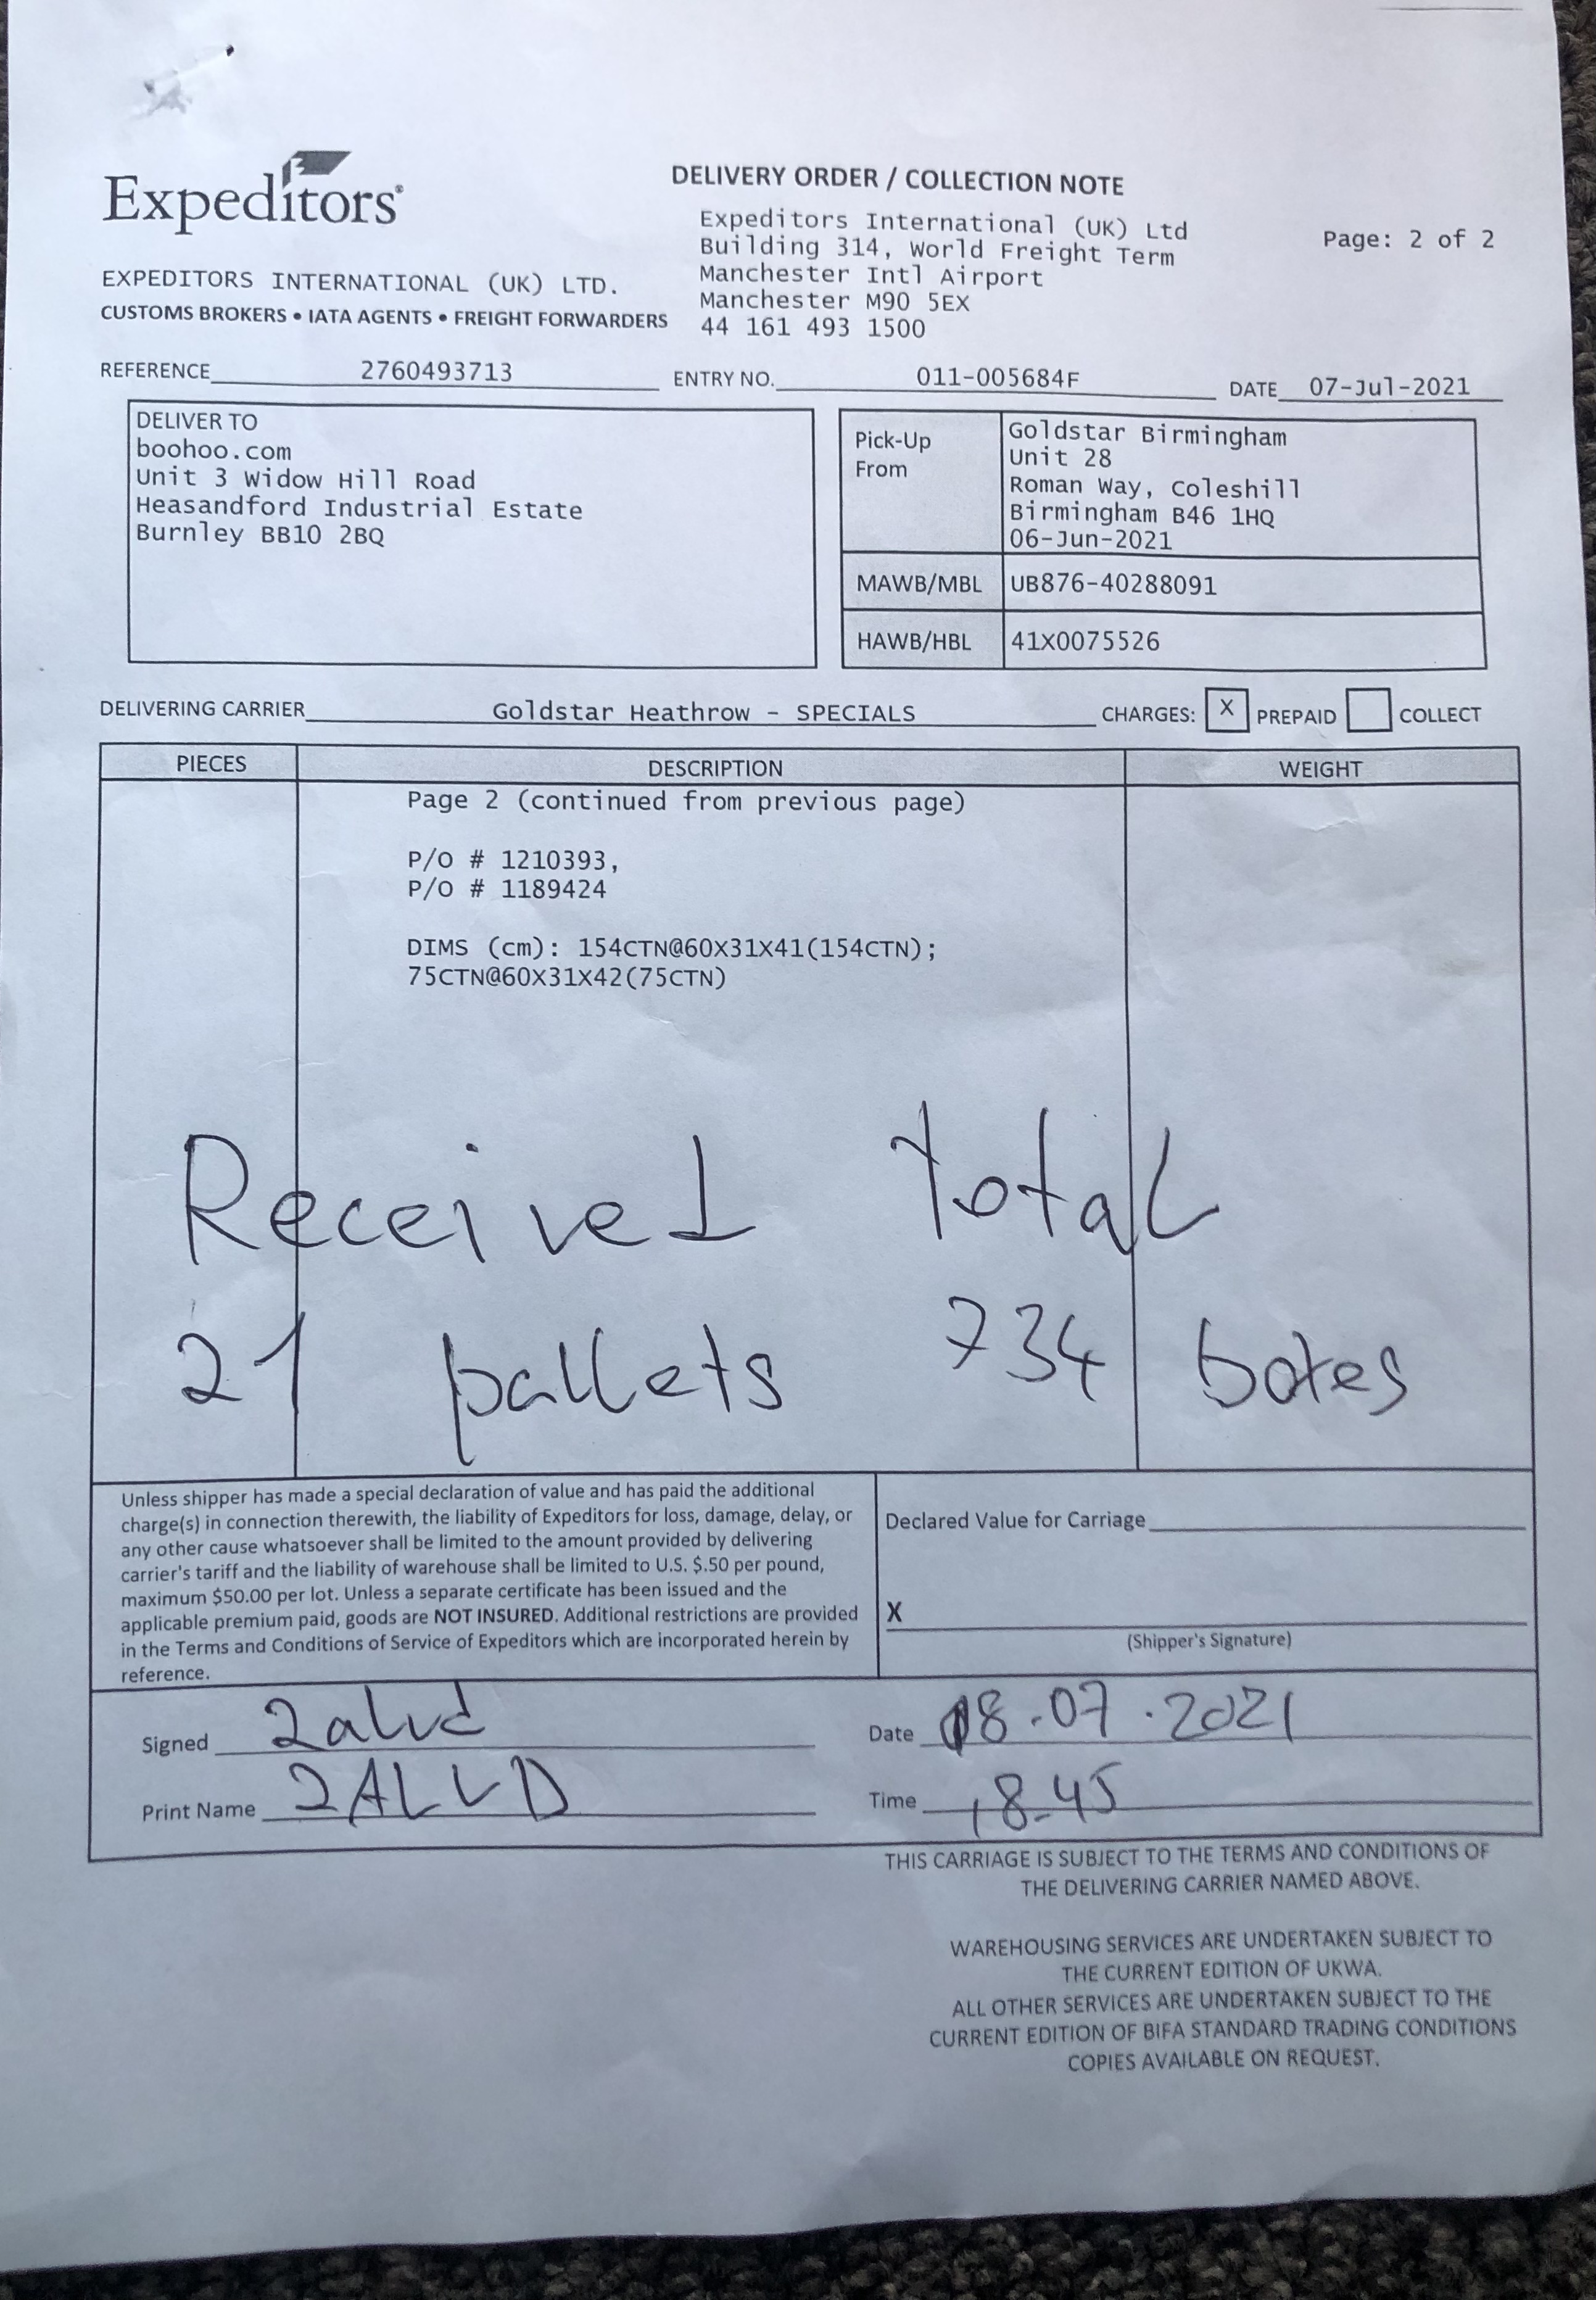 Expeditors®
EXPEDITORS INTERNATIONAL (UK) LTD.
CUSTOMS BROKERS • IATA AGENTS • FREIGHT FORWARDERS
DELIVERY ORDER / COLLECTION NOTE
Expeditors International (UK) Ltd
Building 314, World Freight Term
Manchester Intl Airport
Manchester M90 5EX
44 161 493 1500
Page: 2 of 2
REFERENCE 2760493713 ENTRY NO. 011-005684F DATE 07-Jul-2021
DELIVER TO
boohoo.com
Unit 3 Widow Hill Road
Heasandford Industrial Estate
Burnley BB10 2BQ
Pick-Up
From
Goldstar Birmingham
Unit 28
Roman Way, Coleshill
Birmingham B46 1HQ
06-Jun-2021
MAWB/MBL UB876-40288091
HAWB/HBL 41X0075526
DELIVERING CARRIER Goldstar Heathrow - SPECIALS CHARGES: X PREPAID COLLECT
PIECES DESCRIPTION WEIGHT
Page 2 (continued from previous page)
P/O # 1210393,
P/O # 1189424
DIMS (cm): 154CTN@60X31X41(154CTN);
75CTN@60X31X42(75CTN)
Received total
21 pallets 734 boxes
Unless shipper has made a special declaration of value and has paid the additional
charge(s) in connection therewith, the liability of Expeditors for loss, damage, delay, or
any other cause whatsoever shall be limited to the amount provided by delivering
carrier's tariff and the liability of warehouse shall be limited to U.S. $.50 per pound,
maximum $50.00 per lot. Unless a separate certificate has been issued and the
applicable premium paid, goods are NOT INSURED. Additional restrictions are provided
in the Terms and Conditions of Service of Expeditors which are incorporated herein by
reference.
Declared Value for Carriage
X
(Shipper's Signature)
Signed
Print Name
Date 08.07.2021
Time 18-45
THIS CARRIAGE IS SUBJECT TO THE TERMS AND CONDITIONS OF
THE DELIVERING CARRIER NAMED ABOVE.
WAREHOUSING SERVICES ARE UNDERTAKEN SUBJECT TO
THE CURRENT EDITION OF UKWA.
ALL OTHER SERVICES ARE UNDERTAKEN SUBJECT TO THE
CURRENT EDITION OF BIFA STANDARD TRADING CONDITIONS
COPIES AVAILABLE ON REQUEST.